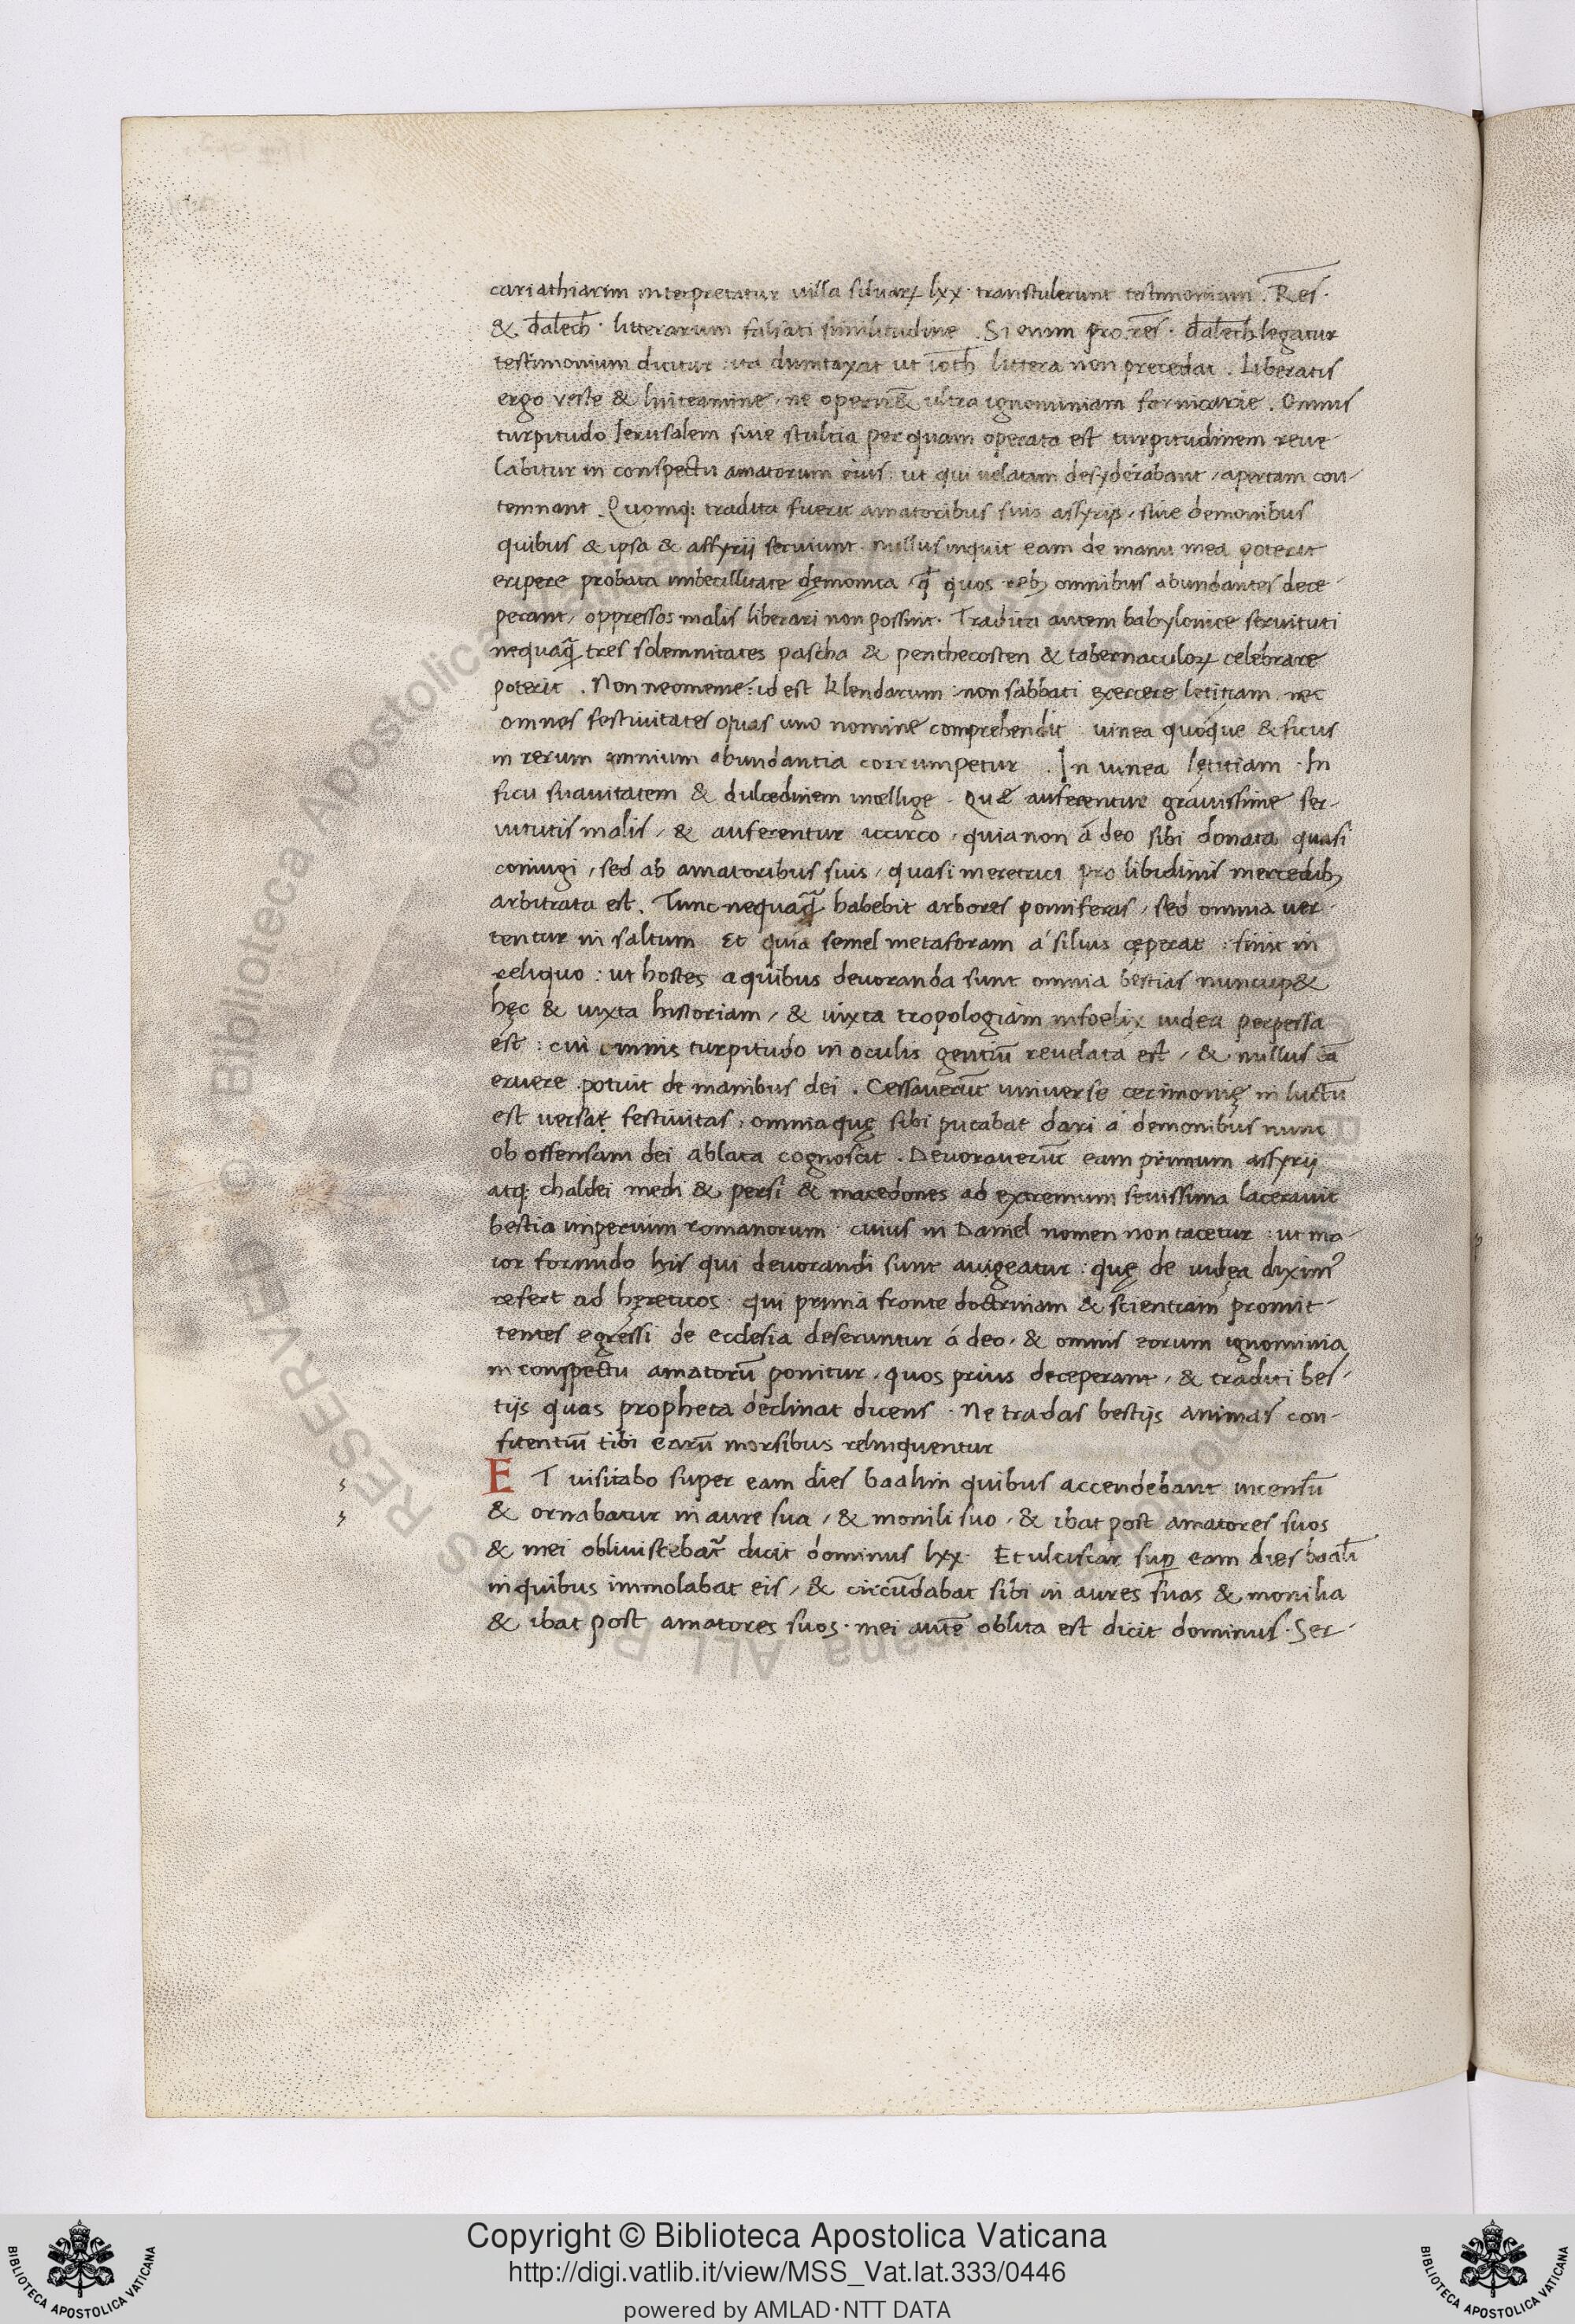 cariathiarim interpretatur uilla siluaꝝ lxx. transtulerunt testimonium. Res.
& daleth. litterarum falsati similitudine. Si enim pro res. daleth legatur
testimonium dicitur: ita dumtaxat ut ioth littera non precedat. Liberatis
ergo veste & linteamine, ne operire& ultra ignominiam fornicarie. Omnis
turpitudo Ierusalem siue stultia per quam operata est turpitudinem reue
labitur in conspectu amatorum eius: ut qui uelatam desyderabant, apertam con-
temnant. Quomq; tradita fuerit amatoribus suis assyrijs, siue demonibus
quibus & ipsa & assyrii seruiunt. nullus inquit eam de manu mea poterit
eripere probata imbecillitate dęmonica quos reb; omnibus abundantes dece-
perant, oppressos malis liberari non possint. Tradita autem babylonice seruituti
nequaq̃ tres solemnitates pascha & penthecosten & tabernaculoꝝ celebrare
poterit. Non neomenie: id est klendarum: non sabbati exercere letitiam, nec
omnes festiuitates quas uno nomine comprehendit: uinea quoque & ficus
in rerum omnium abundantia corrumpetur. In uinea lętitiam. In
ficu suauitatem & dulcedinem intellige. Quę auferentur grauissime ser-
uitutis malis, & auferentur iccirco, quia non á deo sibi donata quasi
coniugi, sed ab amatoribus suis, quasi meretrici pro libidinis mercedib;
arbitrata est. Tunc nequaq̃ habebit arbores pomiferas, sed omnia uer-
tentur in saltum. Et quia semel metaforam á siluis cęperat: finit in
reliquo: ut hostes a quibus deuoranda sunt omnia bestias nuncup&
hęc & iuxta historiam, & iuxta tropologiam infoelix iudea perpessa
est: cui omnis turpitudo in oculis gentiū reuelata est, & nullus eā
eruere potuit de manibus dei. Cessauerūt uniuerse cerimonię in luctū
est uersat festiuitas, omnia quę sibi putabat dari á demonibus nunc
ob offensam dei ablata cognoscit. Deuorauerūt eam primum assyrij
atq; chaldei medi & persi & macedones ad extremum seuissima lacerauit
bestia imperium romanorum. cuius in Daniel nomen non tacetur: ut ma-
ior formido his qui deuorandi sunt augeatur: quę de iudęa diximꝰ
refert ad hęreticos: qui prima fronte doctrinam & scientiam promit-
tentes egressi de ecclesia deseruntur á deo, & omnis eorum ignominia
in conspectu amatorū ponitur, quos prius deceperant, & traditi bes-
tijs quas propheta declinat dicens. Ne tradas bestijs animas con-
fitentiū tibi earū morsibus relinquentur
ET uisitabo super eam dies baalim quibus accendebant incensū
& ornabatur in aure sua, & monili suo, & ibat post amatores suos
& mei obliuiscebat̃ dicit dominus lxx. Et ulciscar suꝑ eam dies baalī
in quibus immolabat eis, & circūdabat sibi in aures suas & monilia
& ibat post amatores suos. mei autē oblita est dicit dominus. Ser-
Copyright © Biblioteca Apostolica Vaticana
http://digi.vatlib.it/view/MSS_Vat.lat.333/0446
powered by AMLAD·NTT DATA